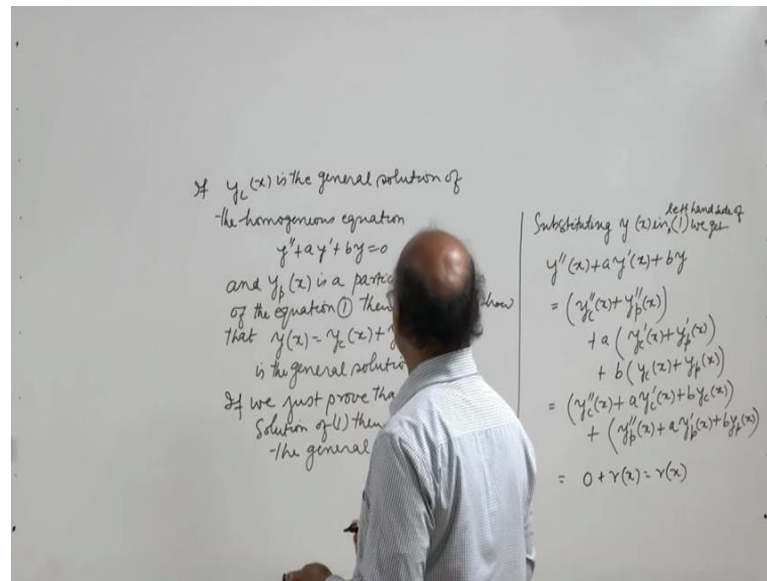 If y_c(x) is the general solution of
the homogeneous equation
y''+ay'+by=0
and y_p(x) is a
of the equation ① then show
that y(x) = y_c(x)+
is the general
If we just prove
Solution of (1) then
the general
Substituting y(x) in left hand side of (1) we get
y''(x)+ay'(x)+by
= (y_c''(x)+y_p''(x))
+a(y_c'(x)+y_p'(x))
+b(y_c(x)+y_p(x))
= (y_c''(x)+ay_c'(x)+by_c(x))
+ (y_p''(x)+ay_p'(x)+by_p(x))
= 0+r(x)=r(x)